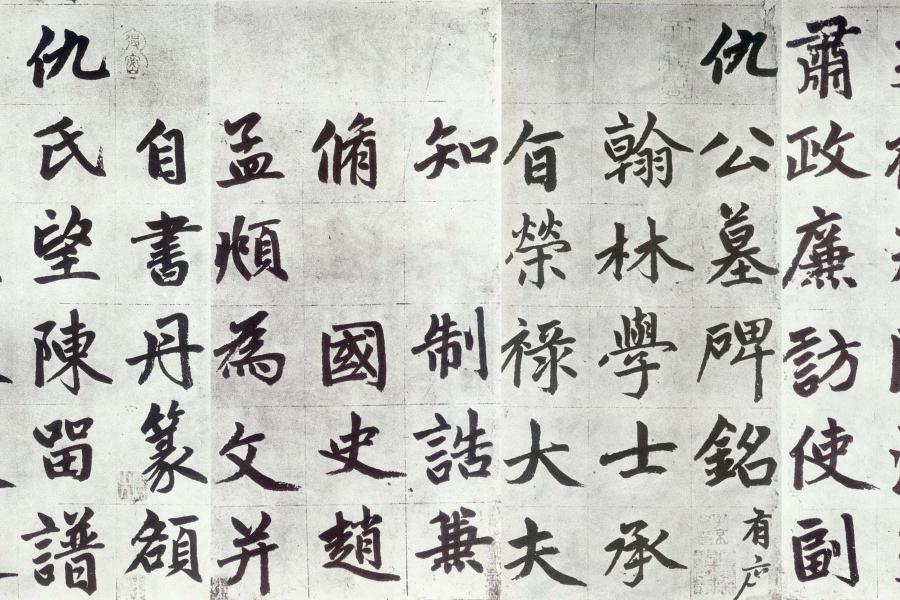 肅政廉訪使副
仇公墓碑銘 有序
翰林學士承
旨榮祿大夫
知 制誥兼
脩 國史趙
孟頫為文并
自書丹篆額
仇氏望陳㽞譜